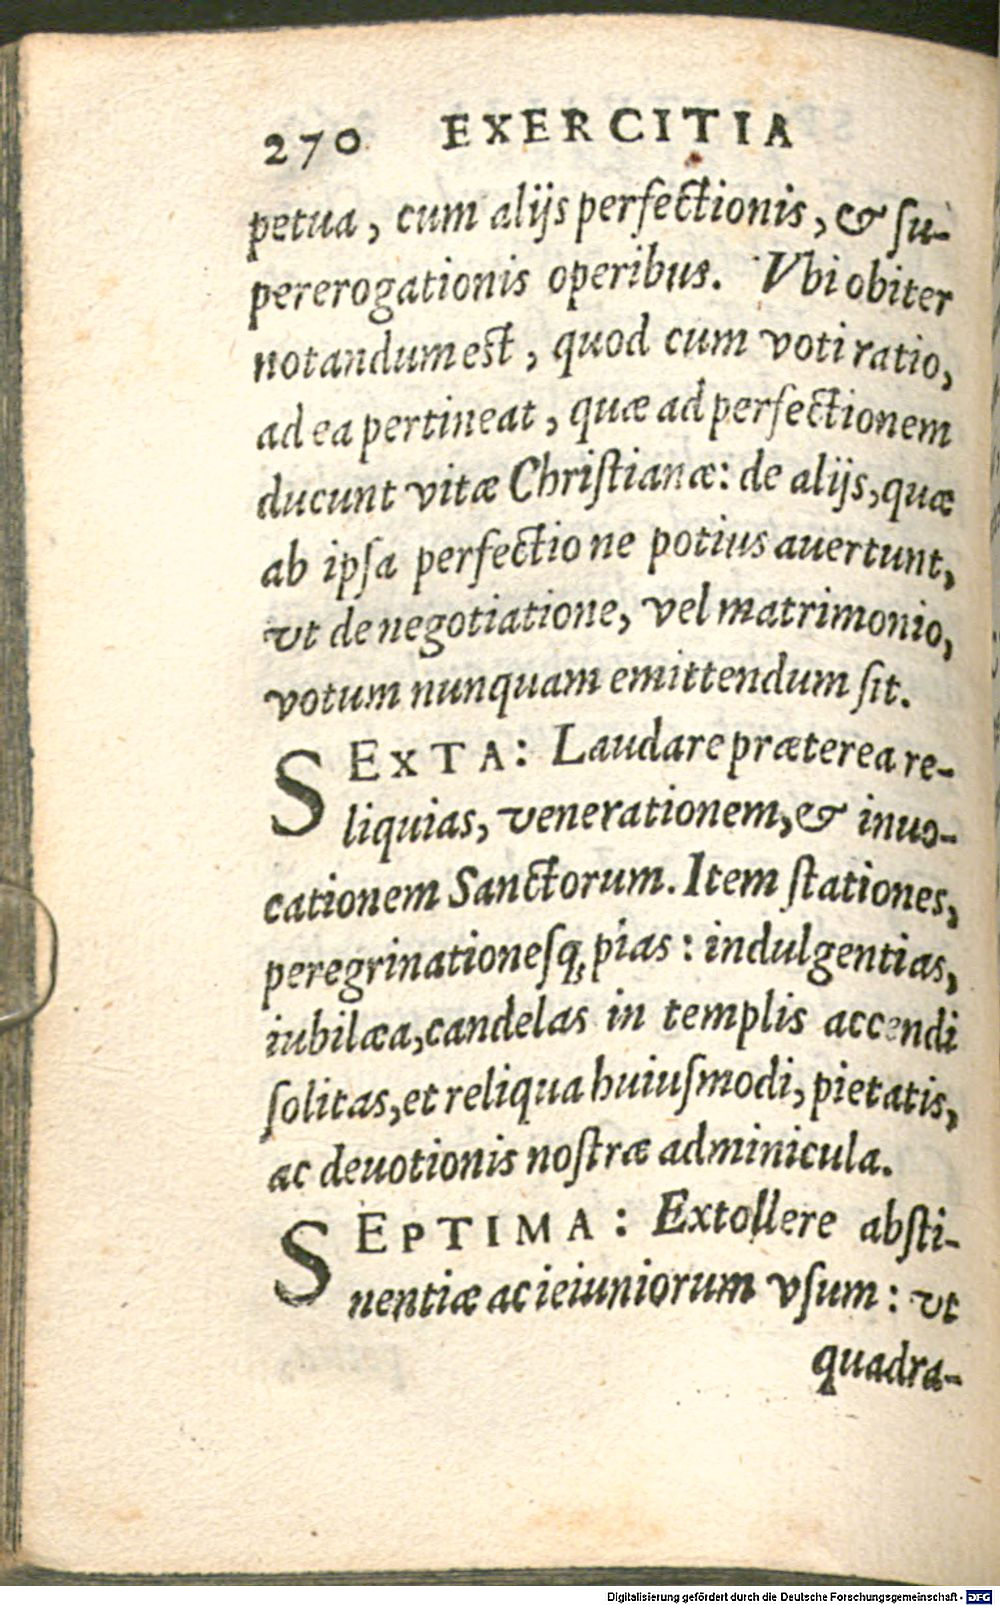 270 EXERCITIA
petua, cum alijs perfectionis, & su-
pererogationis operibus. Vbi obiter
notandum est, quod cum voti ratio,
ad ea pertineat, quæ ad perfectionem
ducunt vitæ Christianæ: de alijs, quæ
ab ipsa perfectione potius auertunt,
vt de negotiatione, vel matrimonio,
votum nunquam emittendum sit.
SEXTA: Laudare præterea re-
liquias, venerationem, & inuo-
cationem Sanctorum. Item stationes,
peregrinationesq; pias: indulgentias,
iubilæa, candelas in templis accendi
solitas, et reliqua huiusmodi, pietatis,
ac deuotionis nostræ adminicula.
SEPTIMA: Extollere absti-
nentiæ ac ieiuniorum vsum: vt
quadra-
Digitalisierung gefördert durch die Deutsche Forschungsgemeinschaft - DFG